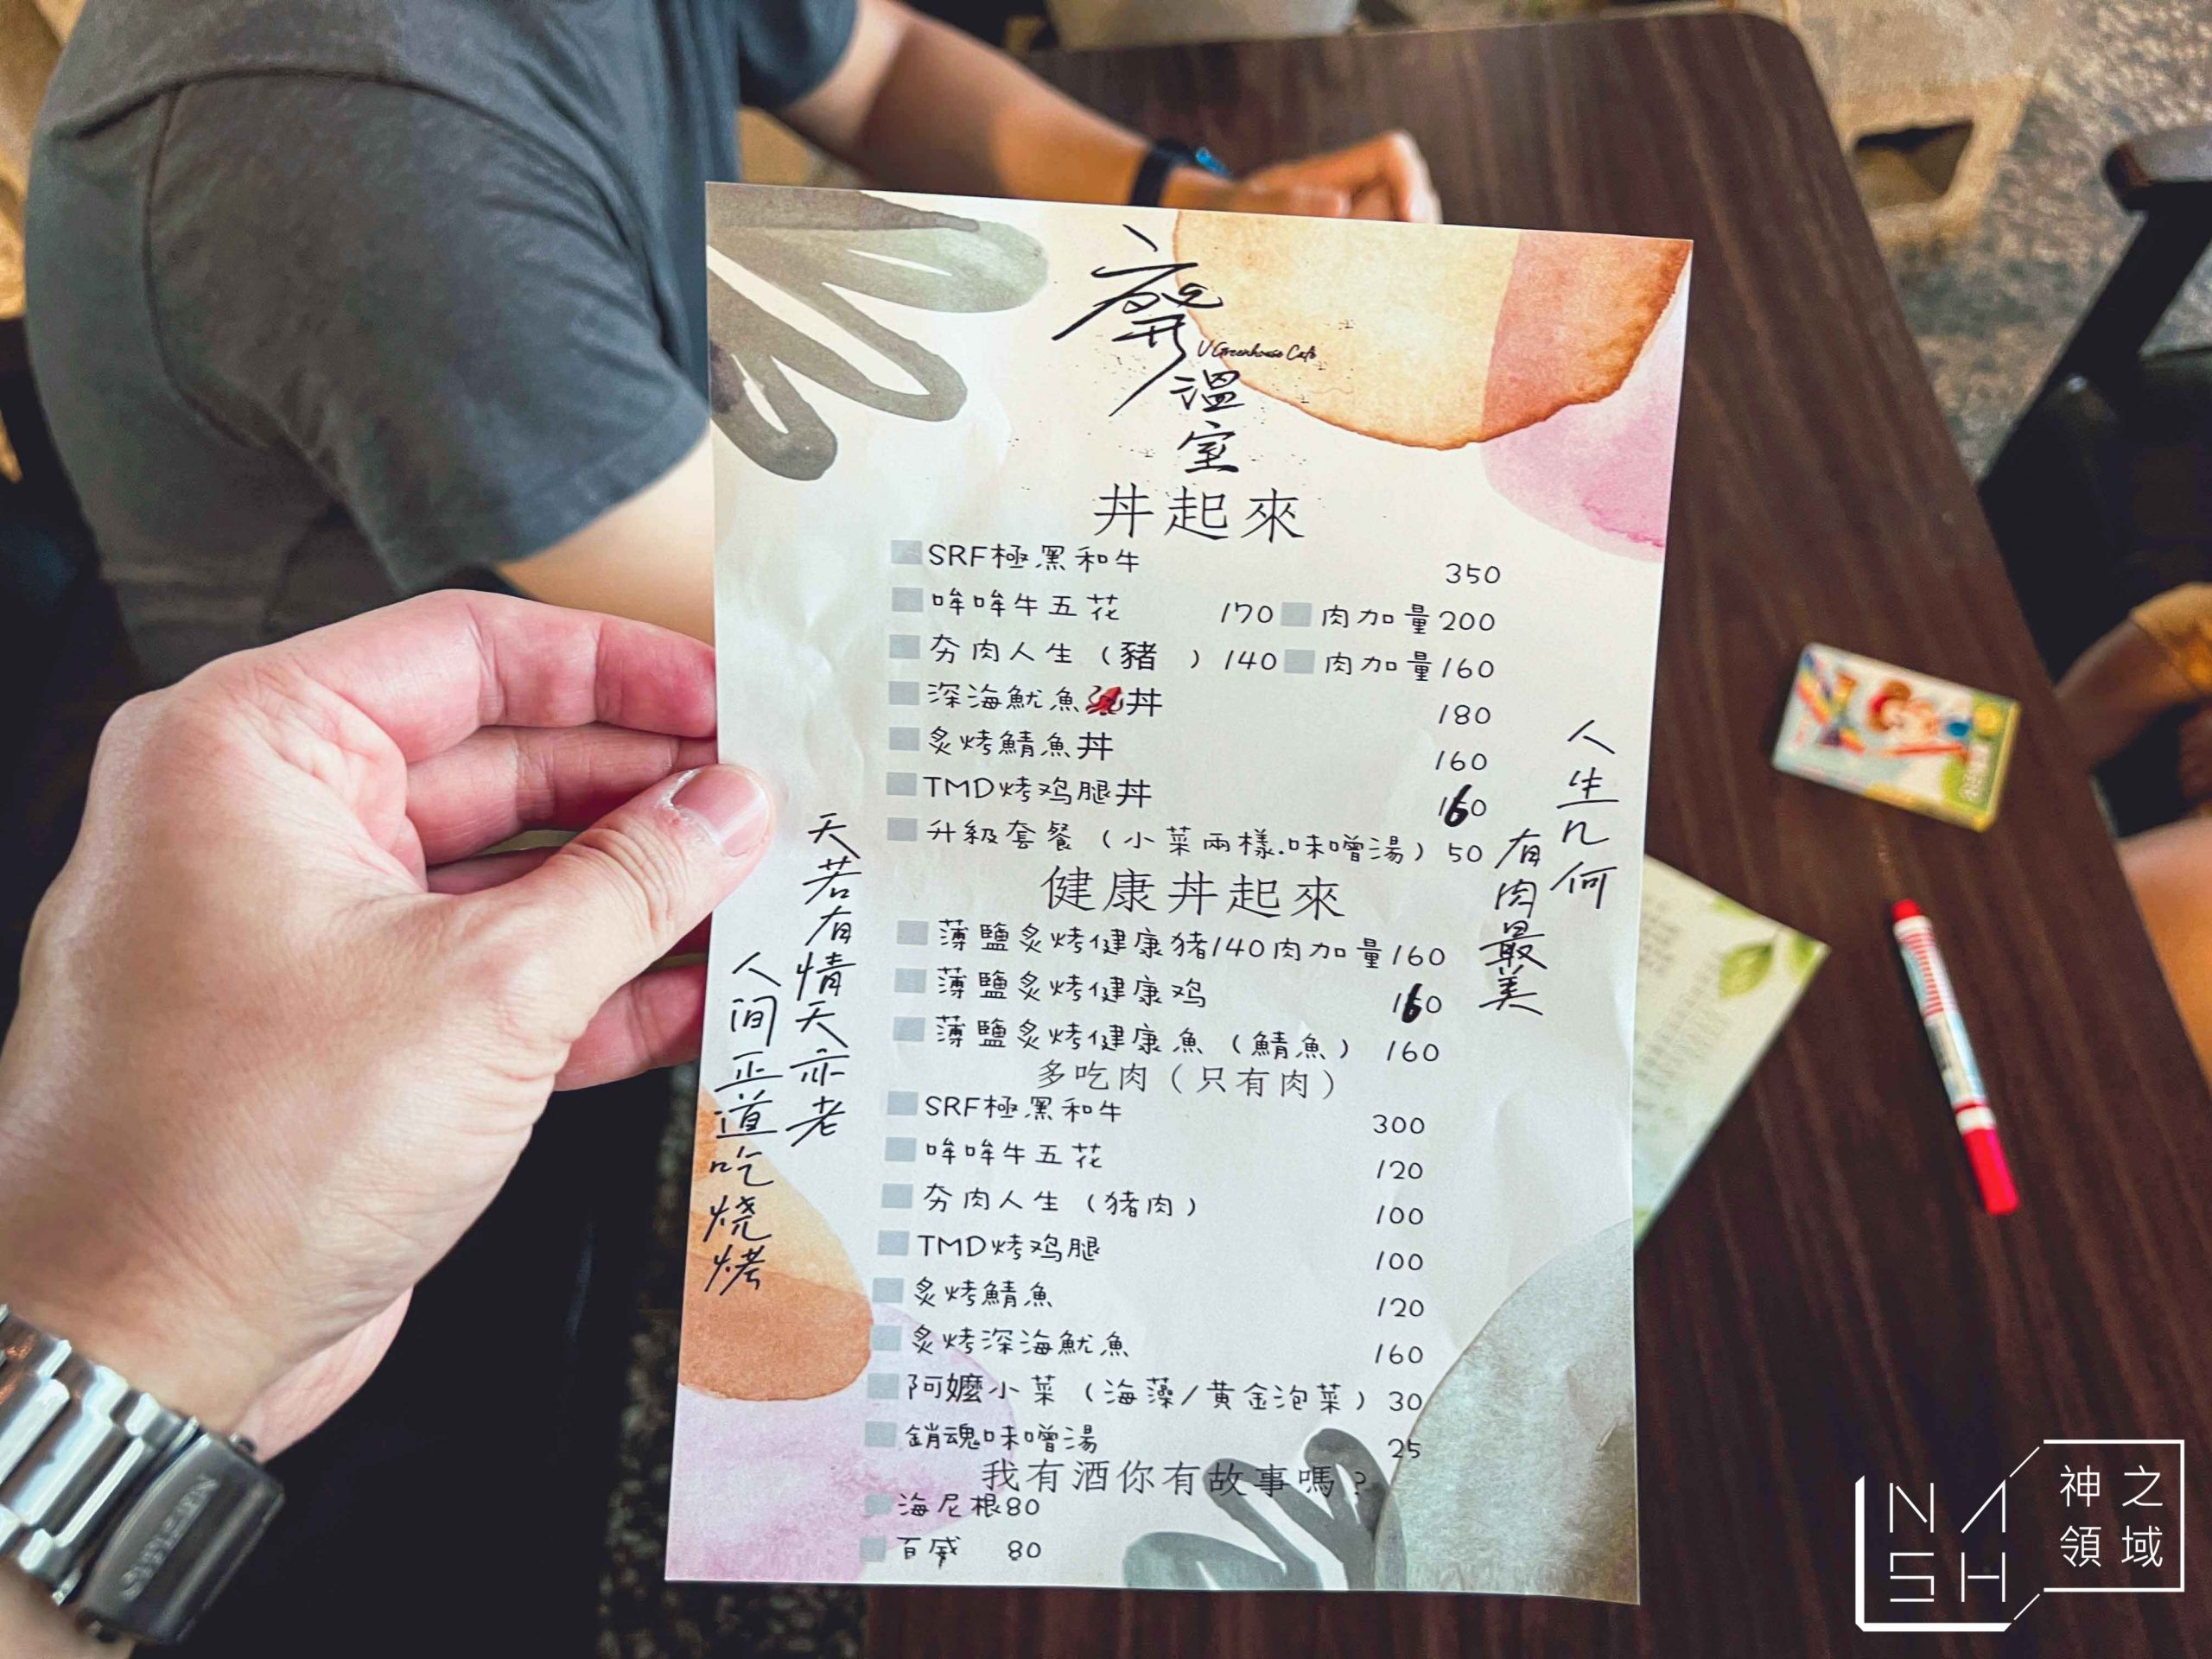 U Greenhouse Cafe
溫
室
丼起來
SRF極黑和牛 350
哞哞牛五花 170 肉加量200
夯肉人生（豬 ）140 肉加量160
深海魷魚🦑丼 180
炙烤鯖魚丼 160
TMD烤鸡腿丼 160
升級套餐（小菜兩樣.味噌湯）50
健康丼起來
薄鹽炙烤健康猪140肉加量160
薄鹽炙烤健康鸡 160
薄鹽炙烤健康魚（鯖魚） 160
多吃肉（只有肉）
SRF極黑和牛 300
哞哞牛五花 120
夯肉人生（猪肉） 100
TMD烤鸡腿 100
炙烤鯖魚 120
炙烤深海魷魚 160
阿嬤小菜（海藻/黄金泡菜）30
銷魂味噌湯 25
我有酒你有故事嗎？
海尼根80
百威 80
人生几何
有肉最美
天若有情天亦老
人间正道吃烧烤
NASH
神之
領域